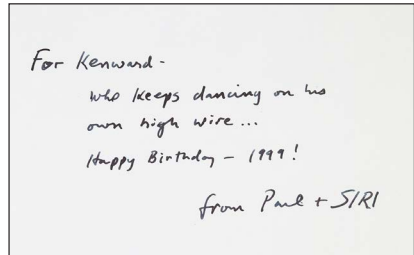 For Kenward -
who keeps dancing on his
own high wire...
Happy Birthday - 1999!
from Paul + SIRI